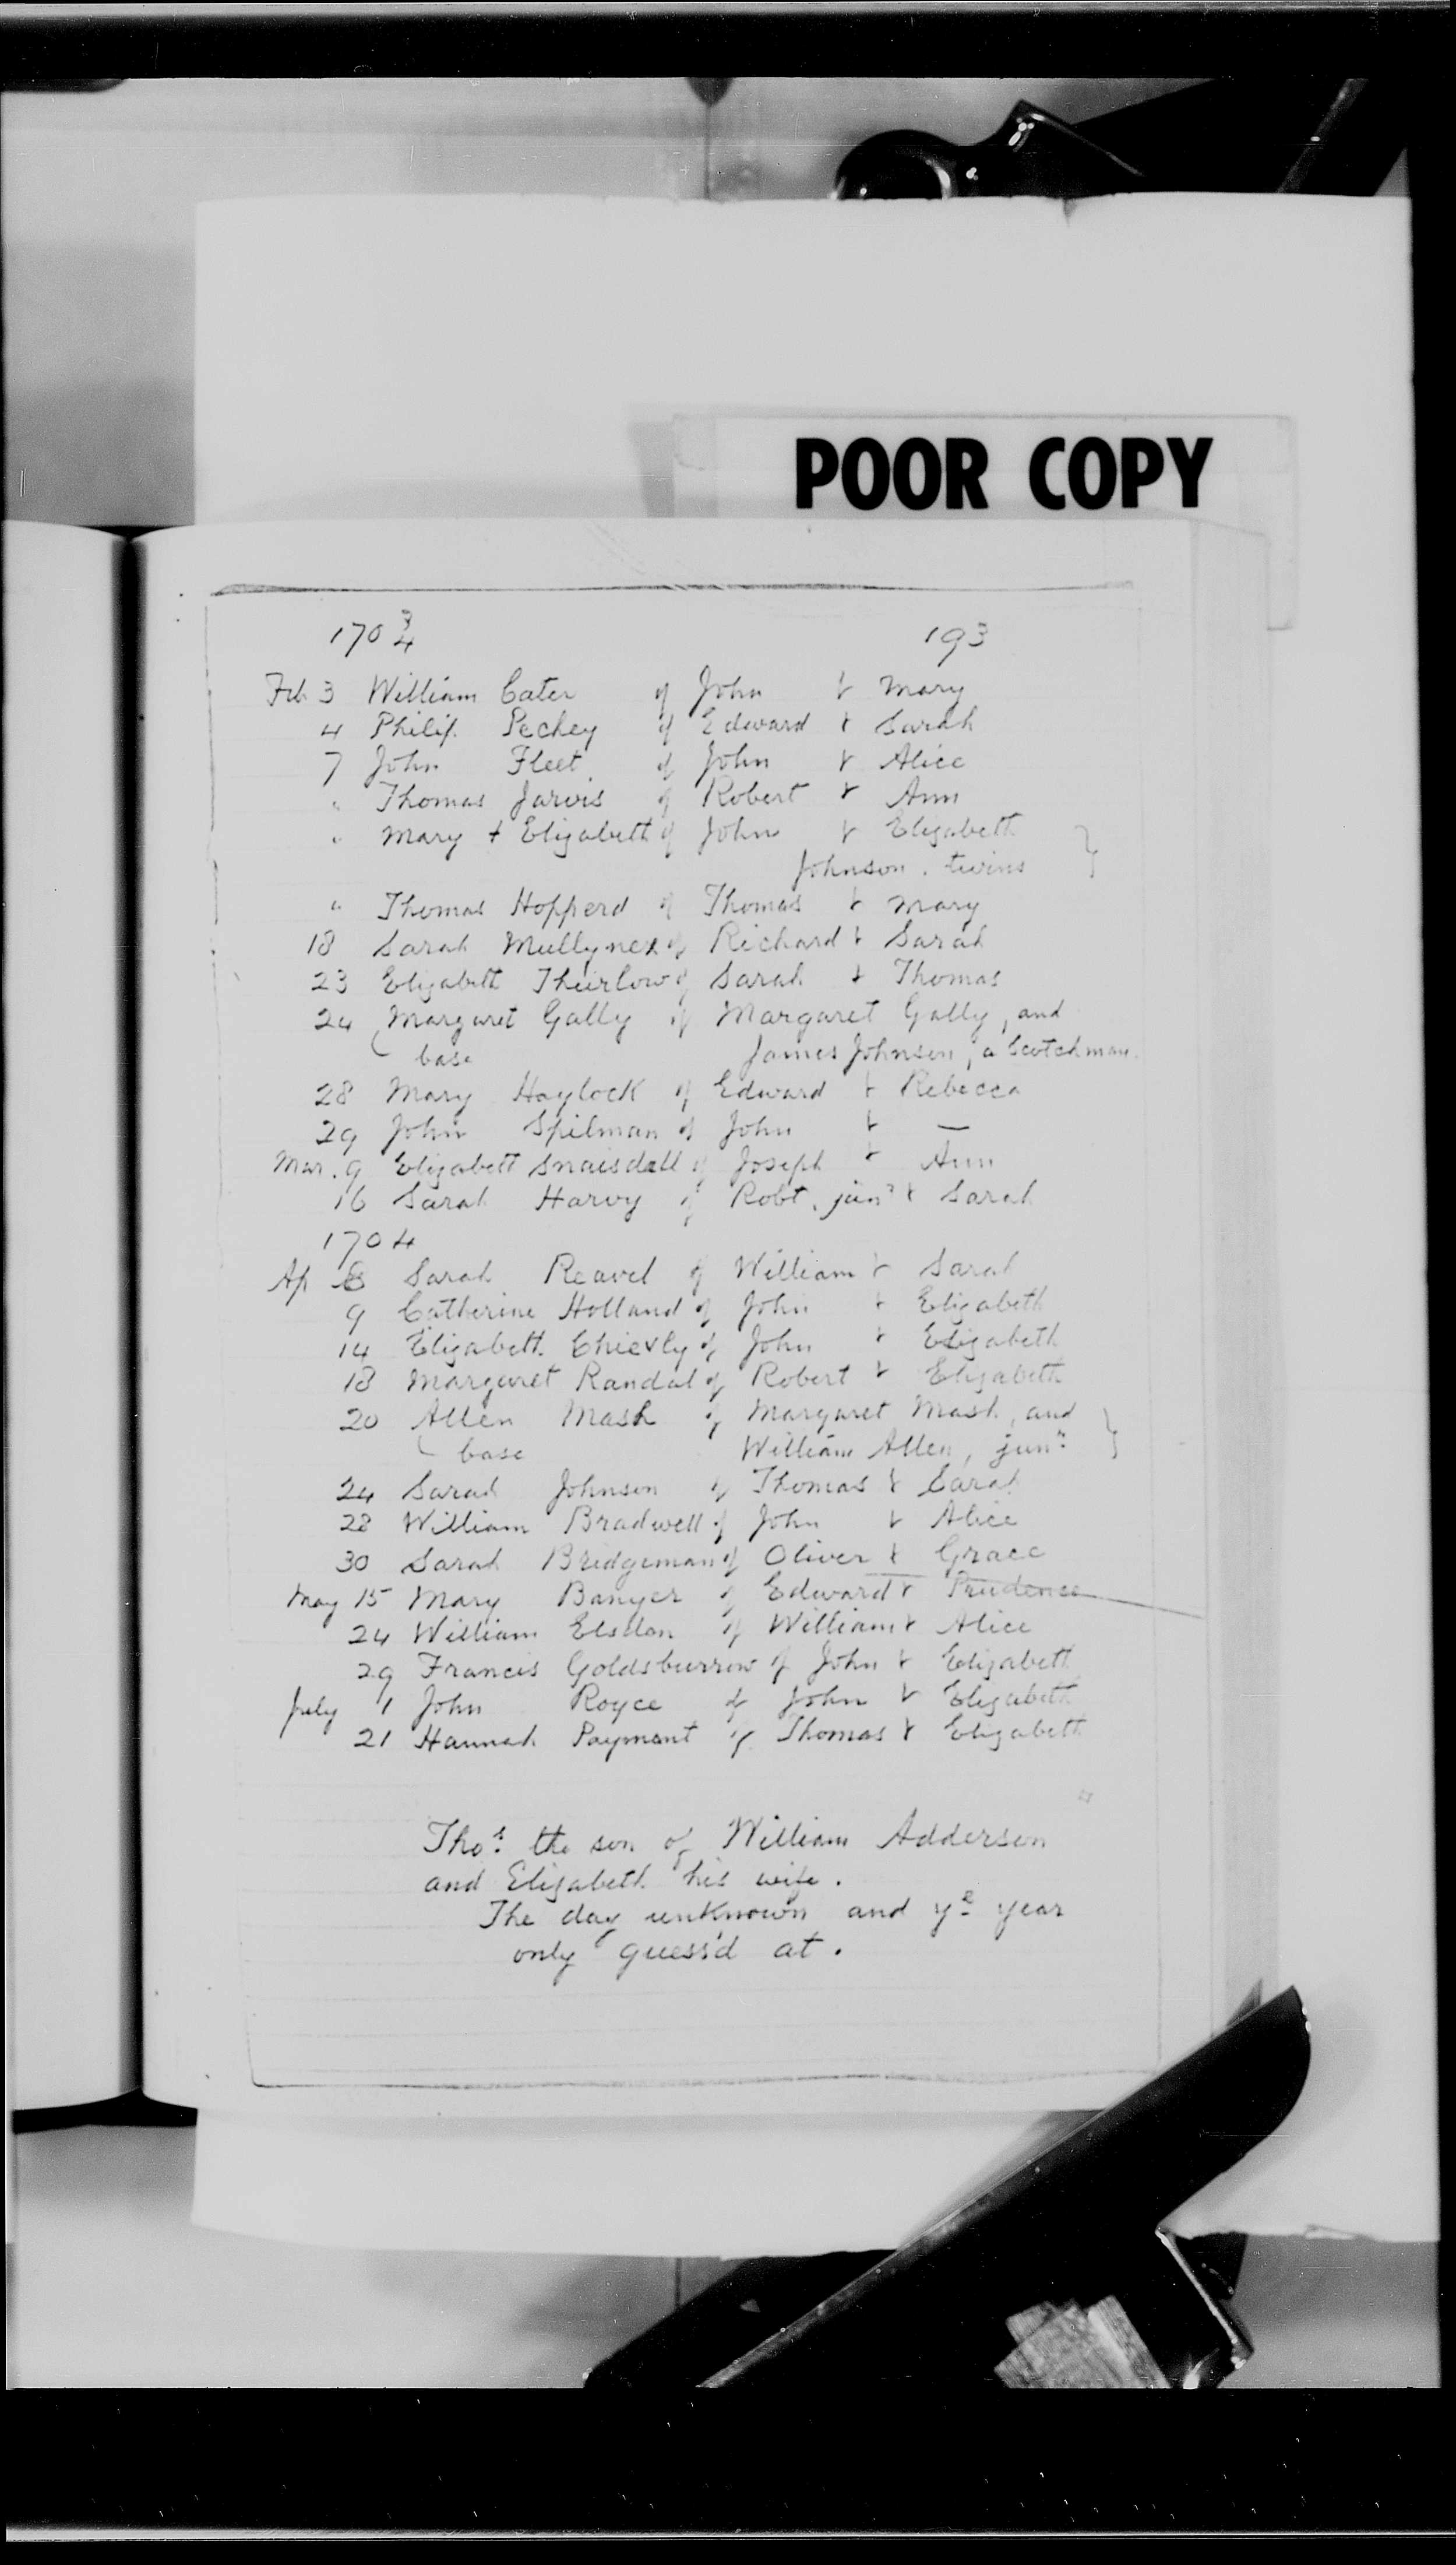 POOR COPY
170 3/4 193
Feb 3 William Cater of John & Mary
4 Philip. Pechey of Edward & Sarah
7 John Fleet of John & Alice
" Thomas Jarvis of Robert & Ann
" Mary & Elizabeth of John & Elizabeth
Johnson. twins }
" Thomas Hopperd of Thomas & Mary
18 Sarah Mullynex of Richard & Sarah
23 Elizabeth Thurlow of Sarah & Thomas
24 Margaret Gally of Margaret Gally, and
( base James Johnson, a Scotchman.
28 Mary Haylock of Edward & Rebecca
29 John Spilman of John & —
Mar. 9 Elizabeth Snaisdall of Joseph & Ann
16 Sarah Harvy of Robt. junr & Sarah
1704
Ap Sarah Reavel of William & Sarah
9 Catherine Holland of John & Elizabeth
14 Elizabeth Chievly of John & Elizabeth
18 Margaret Randal of Robert & Elizabeth
20 Allen Mash of Margaret Mash, and }
( base William Allen, junr
24 Sarah Johnson of Thomas & Sarah
28 William Bradwell of John & Alice
30 Sarah Bridgeman of Oliver & Grace
May 15 Mary Banyer of Edward & Prudence
24 William Elsdon of William & Alice
29 Francis Goldsburrow of John & Elizabeth
July 1 John Royce of John & Elizabeth
21 Hannah Payment of Thomas & Elizabeth
Thos. the son of William Adderson
and Elizabeth his wife.
The day unknown and ye year
only guess'd at.